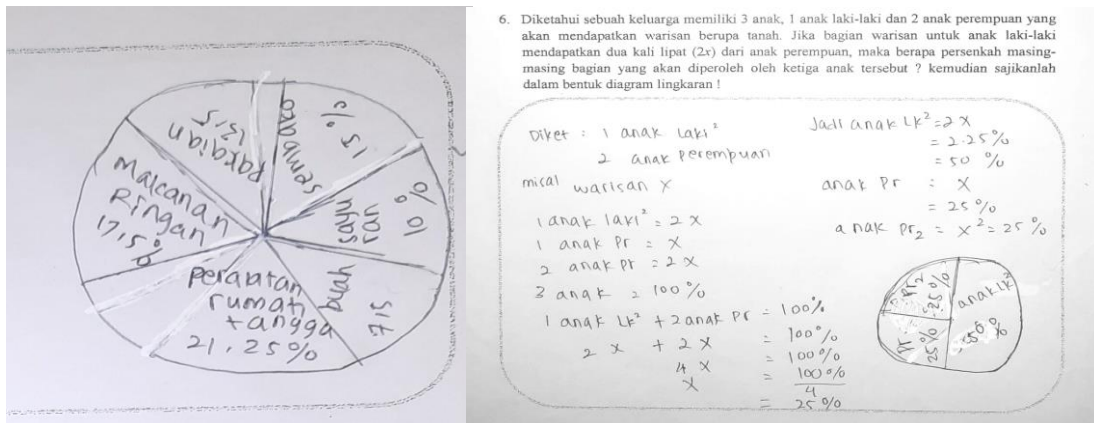 sembako
15 %
pakaian
13,15
sayu
ran
10 %
Makanan
Ringan
17,5%
buah
7,15
perabotan
rumah
tangga
21,25%
6. Diketahui sebuah keluarga memiliki 3 anak, 1 anak laki-laki dan 2 anak perempuan yang
akan mendapatkan warisan berupa tanah. Jika bagian warisan untuk anak laki-laki
mendapatkan dua kali lipat (2x) dari anak perempuan, maka berapa persenkah masing-
masing bagian yang akan diperoleh oleh ketiga anak tersebut ? kemudian sajikanlah
dalam bentuk diagram lingkaran !
Diket : 1 anak laki²
2 anak perempuan
misal warisan x
1 anak laki² = 2 x
1 anak Pr = x
2 anak Pr = 2 x
3 anak = 100 %
1 anak Lk² + 2 anak Pr = 100%
2 x + 2 x = 100%
4 x = 100 %
x = 100 %
4
= 25 %
Jadi anak Lk² = 2 x
= 2.25 %
= 50 %
anak Pr : x
= 25 %
anak Pr₂ = x² = 25 %
Pr2
25 %
anak Lk²
50 %
Pr
25 %